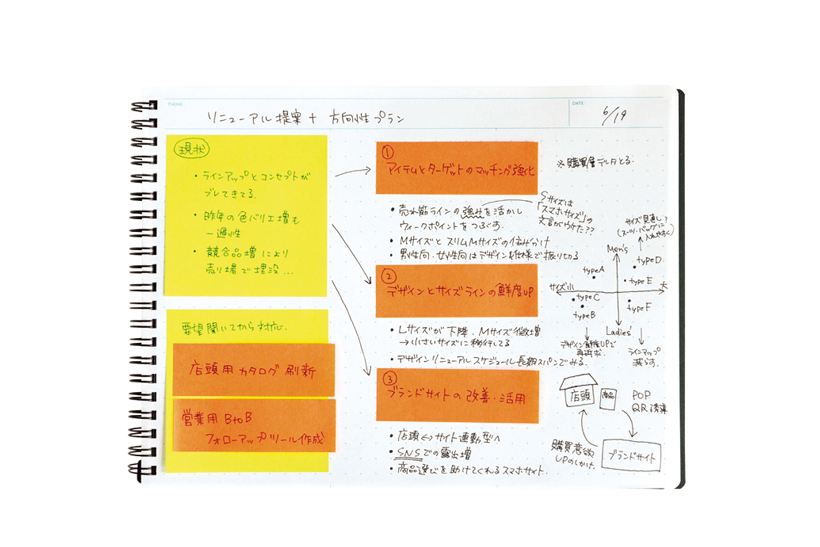 THEME
リニューアル提案 + 方向性プラン
DATE
6/19
現状
・ラインアップとコンセプトが
ブレてきてる.
・昨年の色バリエ増も
一過性
・競合品増により
売り場で埋没...
要望聞いてから対応.
店頭用カタログ刷新
営業用 BtoB
フォローアップツール作成
①
アイテムとターゲットのマッチング強化
・売れ筋ラインの強みを活かし
ウィークポイントをつぶす.
・MサイズとスリムMサイズの住み分け
・男性向・女性向はデザインも仕様で振り切る
②
デザインとサイズラインの鮮度UP
・Lサイズが下降. Mサイズ微増
→小さいサイズに移行してる
・デザインリニューアルスケジュール長期スパンでみる.
③
ブランドサイトの改善・活用
・店頭⇔サイト連動型へ
・SNSでの露出増
・商品選びを助けてくれるスマホサイト.
※購買層データとる.
Sサイズは
「スマホサイズ」の
文言がウケた??
サイズ見直し?
入れやすく)
Men's
typeA
typeD
typeE
サイズ小
大
typeC
typeB
typeF
Ladies
デザイン鮮度UPで
ラインアップ
減らす.
店頭
商品
POP
QR 誘導
購買意欲
UPのしかけ
ブランドサイト